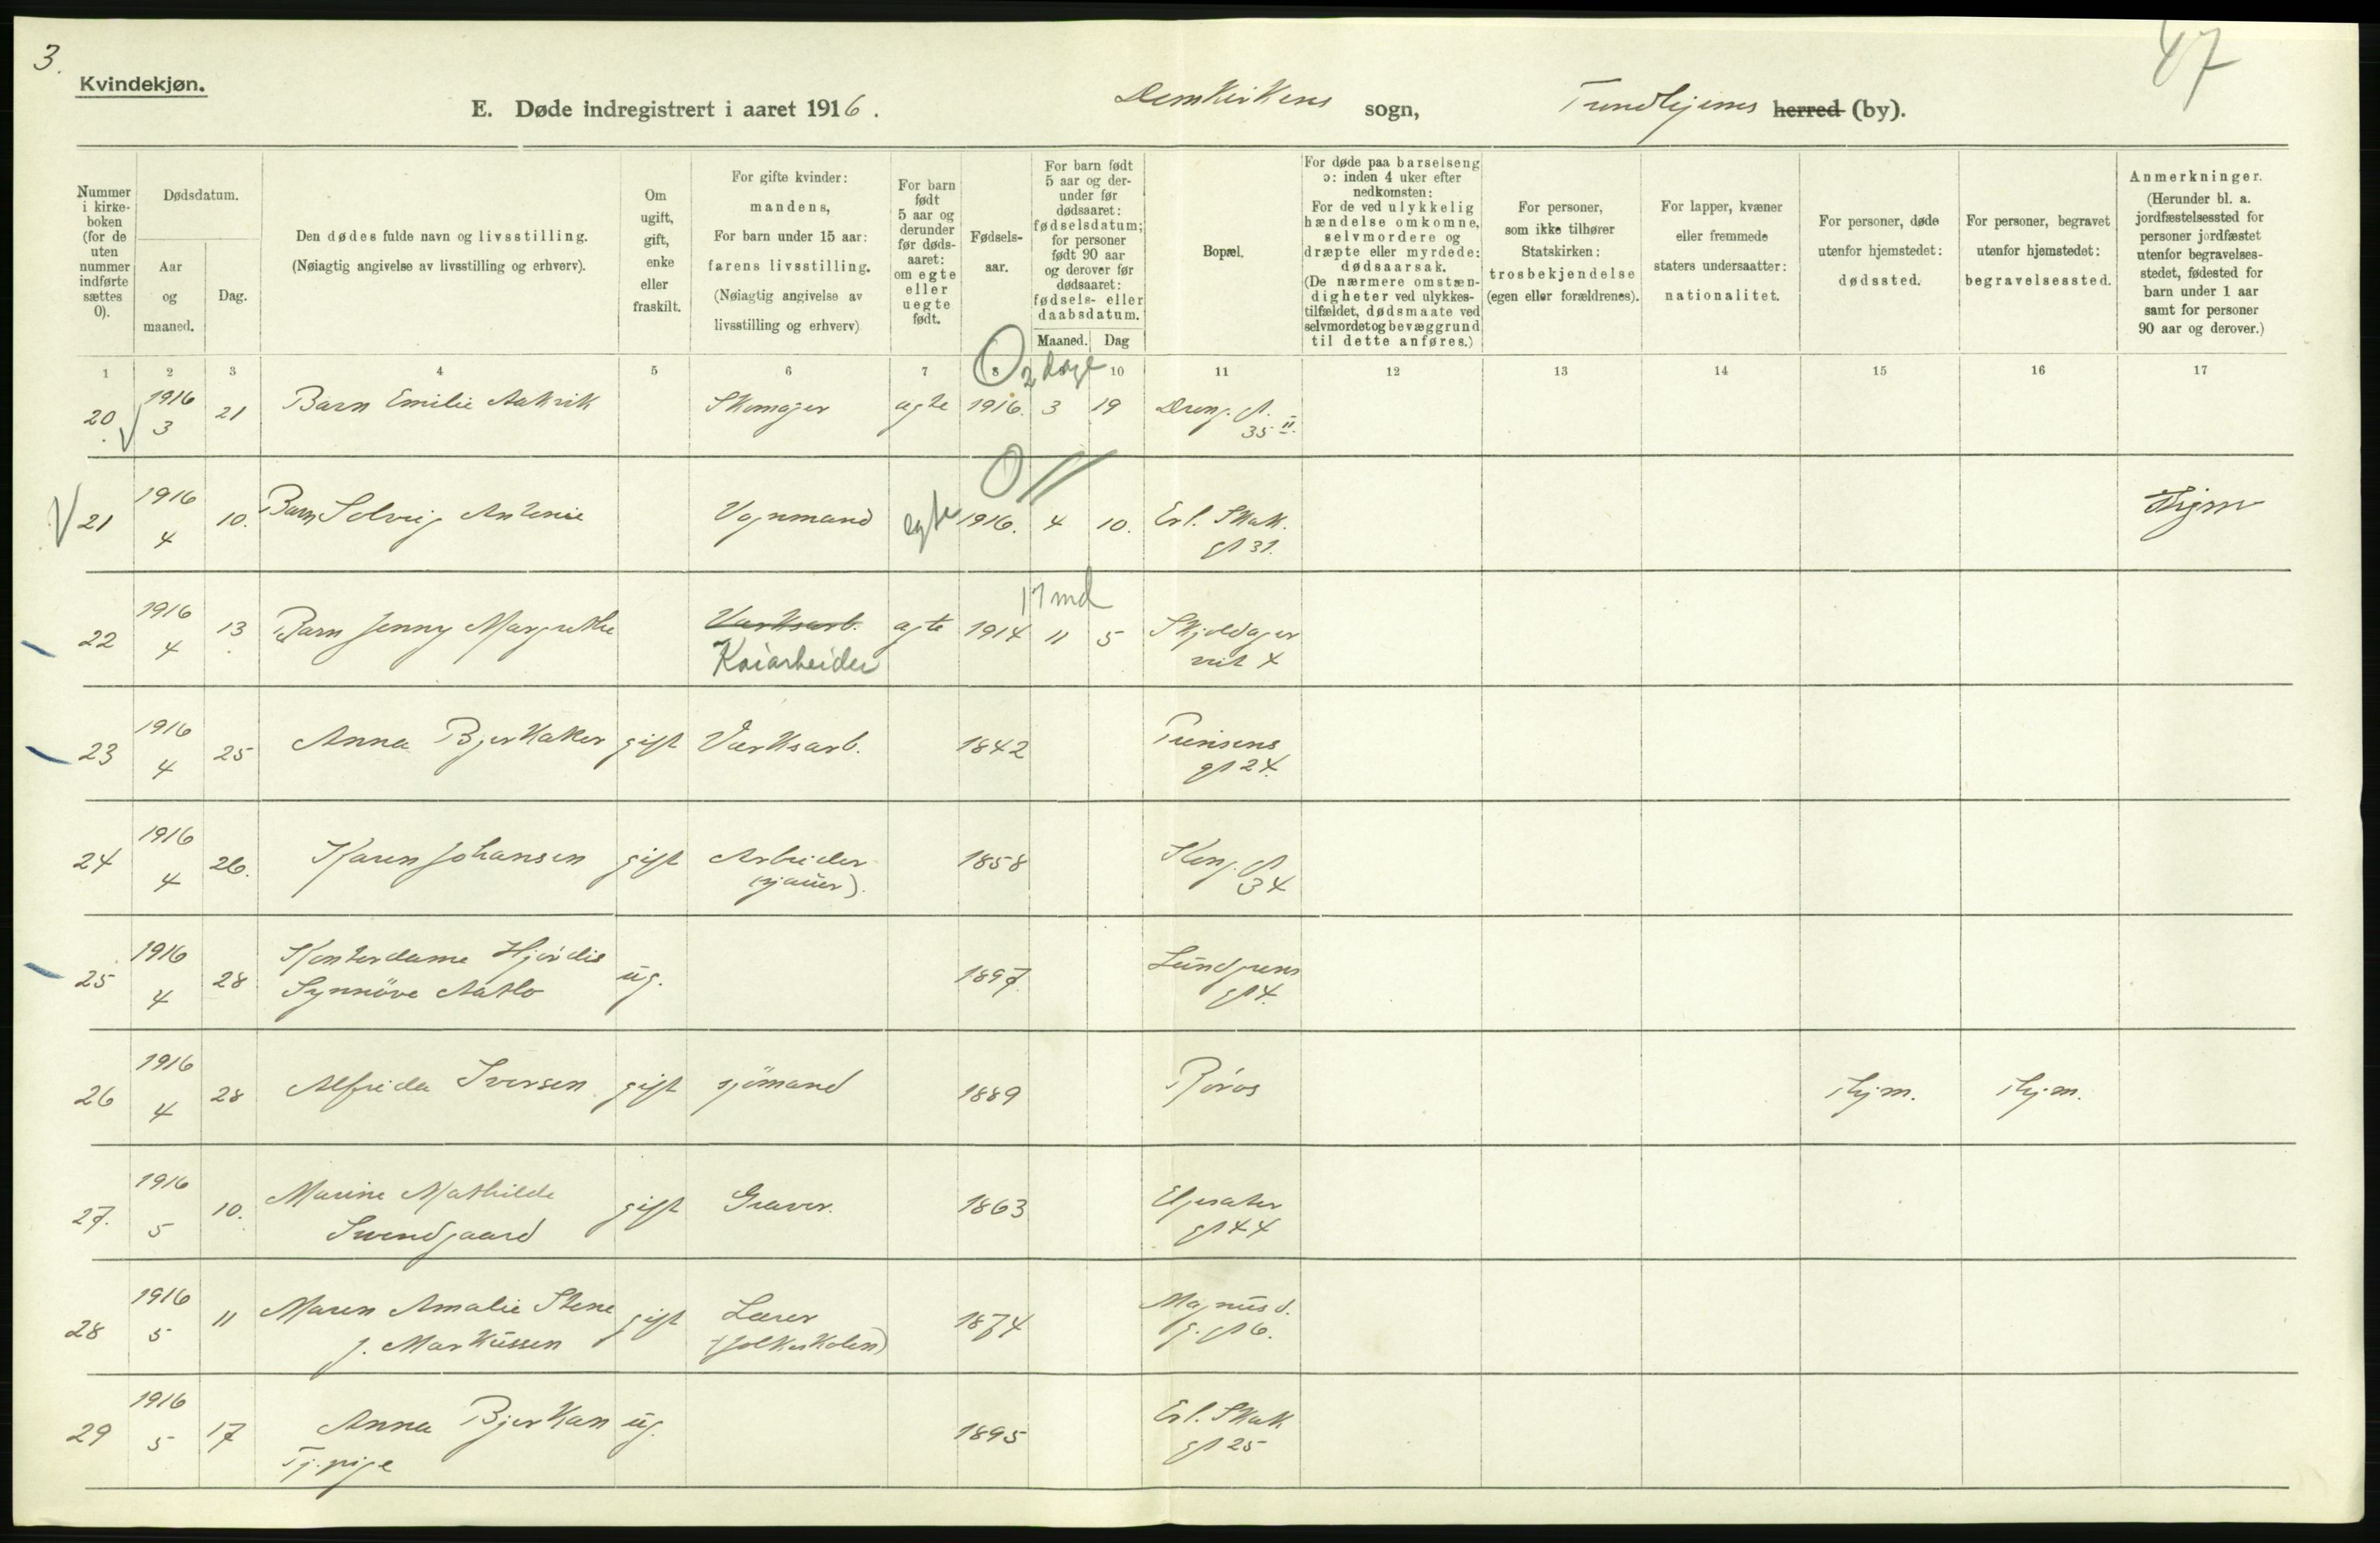 3.
47
Kvindekjøn.
E. Døde indregistrert i aaret 1916. Domkirkens sogn, Trondhjems herred (by).
Nummer i kirke-boken (for de uten nummer indførte sættes 0).
Dødsdatum.
Aar og maaned.
Dag.
Den dødes fulde navn og livsstilling.
(Nøiagtig angivelse av livsstilling og erhverv).
Om ugift, gift, enke eller fraskilt.
For gifte kvinder:
mandens,
For barn under 15 aar:
farens livsstilling.
(Nøiagtig angivelse av
livsstilling og erhverv)
For barn født 5 aar og derunder før døds-aaret: om egte eller uegte født.
Fødsels-aar.
For barn født 5 aar og der-under før dødsaaret: fødselsdatum; for personer født 90 aar og derover før dødsaaret: fødsels- eller daabsdatum.
Maaned. Dag
Bopæl.
For døde paa barselseng
ɔ: inden 4 uker efter
nedkomsten:
For de ved ulykkelig
hændelse omkomne,
selvmordere og
dræpte eller myrdede:
dødsaarsak.
(De nærmere omstæn-
digheter ved ulykkes-
tilfældet, dødsmaate ved
selvmordet og bevæggrund
til dette anføres.)
For personer,
som ikke tilhører
Statskirken:
trosbekjendelse
(egen eller forældrenes).
For lapper, kvæner
eller fremmede
staters undersaatter:
nationalitet.
For personer, døde
utenfor hjemstedet:
dødssted.
For personer, begravet
utenfor hjemstedet:
begravelsessted.
Anmerkninger.
(Herunder bl. a.
jordfæstelsessted for
personer jordfæstet
utenfor begravelses-
stedet, fødested for
barn under 1 aar
samt for personer
90 aar og derover.)
1 2 3 4 5 6 7 8 9 10 11 12 13 14 15 16 17
0 2 dage
20 1916 3 21 Barn Emilie Aakvik Skomager ægte 1916. 3 19 Dron. gt. 35 II.
0 //
21 1916 4 10. Barn Solveig Antonie Vognmand egte 1916. 4 10. Erl. Skak. gt 31. Thjem
17 md
22 1916 4 13 Barn Jenny Margrethe Værksarb. Kaiarbeider ægte 1914 11 5 Skjoldager veit 4
23 1916 4 25 Anna Bjerkaker gift Værksarb. 1842 Prinsens gt 24.
24 1916 4 26. Karen Johansen gift Arbeider (sjauer). 1858 Kong. gt 34
25 1916 4 28 Kontordame Hjørdis Synnöve Aatlo ug. 1897 Lundgrens gt 4.
26 1916 4 28 Alfrida Iversen gift sjömand 1889 Røros Thjm. Thjm.
27. 1916 5 10. Marine Mathilde Svendgaard gift Graver. 1863 Elgesater gt 44
28 1916 5 11 Maren Amalie Stene f. Markussen gift Lærer (folkeskolen) 1874 Magnus d. g. gt 6.
29 1916 5 17 Anna Bjerkan Tj.pige ug. 1895 Erl. Skak gt 25